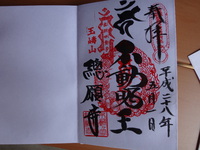 奉拝
平成二十八年
五月一日
不動明王
玉嶋山
總願寺